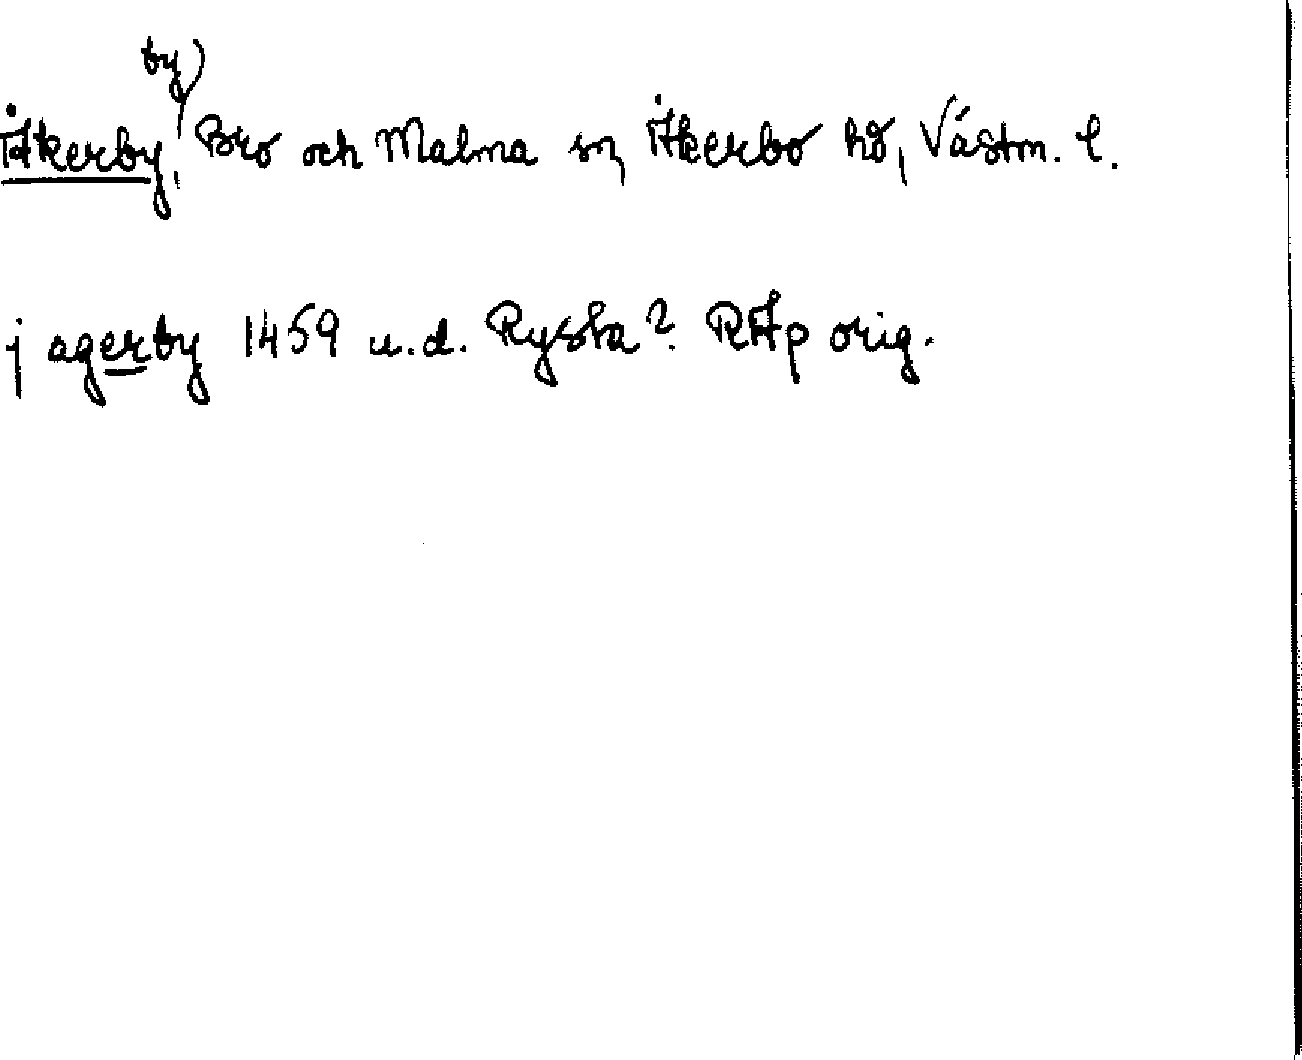 by
Åkerby, Bro och Malma sn, Åkerbo hd, Västm. l.
j agerby 1459 u.d. Rysta? RAp orig.